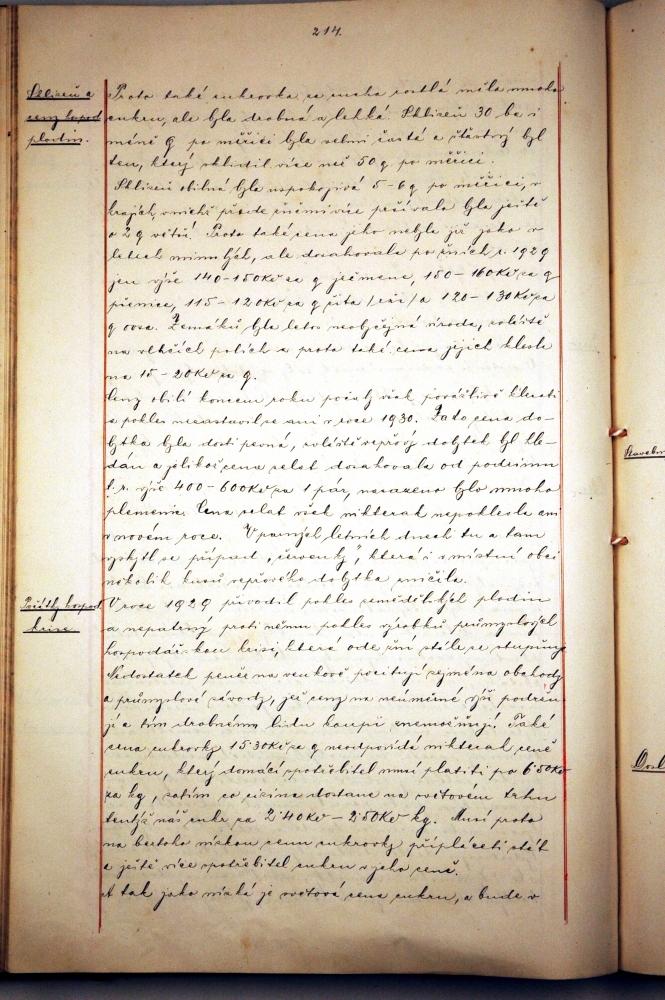 214.
Sklizeň a
ceny hospod.
plodin.
Proto také cukrovka za sucha rostlá měla mnoho
cukru, ale byla drobná a lehká. Sklizeň 30 ba i
méně q po měřici byla velmi častá a šťastný byl
ten, který sklidil více než 50 q po měřici.
Sklizeň obilná byla uspokojivá 5-6 q po měřici, v
krajích, v nichž přede žněmi více pršívalo byla ještě
o 2 q větší. Proto také cena jeho nebyla již jako v
letech minulých, ale dosahovala po žních r. 1929
jen výše 140-150 Kč za q ječmene, 150-160 Kč za q
pšenice, 115-120 Kč za q žita /rži/ a 120-130 Kč za
q ovsa. Zemáků byla letos neobyčejná úroda, zvláště
na vlhčích polích a proto také cena jejich klesla
na 15-20 Kč za q.
Ceny obilí koncem roku počaly však povážlivě klesati
a pokles nezastavil se ani v roce 1930. Zato cena do-
bytka byla dosti pevná, zvláště vepřový dobytek byl hle-
dán a jelikož cena selat dosahovala od podzimu
t. r. výše 400-600 Kč za 1 pár, nasazeno bylo mnoho
plemenic. Cena selat však nikterak nepoklesla ani
v novém roce. V parných letních dnech tu a tam
vyskytl se případ „červenky", která i v místní obci
několik kusů vepřového dobytka zničila.
Počátky hospod.
krise.
V roce 1929 přivodil pokles zemědělských plodin
a nepatrný proti němu pokles výrobků průmyslových
hospodářskou krisi, která ode žní stále se stupňuje
Nedostatek peněz na venkově pociťují zejména obchody
a průmyslové závody, jež ceny na neúměrné výši podržu-
jí a tím drobnému lidu koupi znemožňují. Také
cena cukrovky 15·30 Kč za q neodpovídá nikterak ceně
cukru, který domácí spotřebitel musí platiti po 6·50 Kč
za kg, zatím co cizina dostane na světovém trhu
tentýž náš cukr za 2·40 Kč - 2·50 Kč kg. Musí proto
na takto nízkou cenu cukrovky připláceti stát
a ještě více spotřebitel cukru v jeho ceně.
A tak jako nízká je světová cena cukru, a bude v
Stavebn